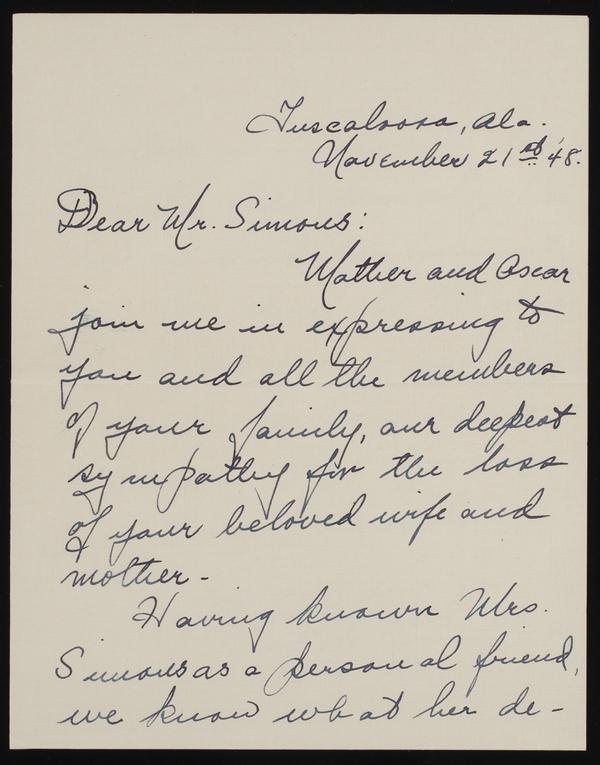 Tuscaloosa, Ala.
November 21st, '48.
Dear Mr. Simons:
Mother and Oscar
join me in expressing to
you and all the members
of your family, our deepest
sympathy for the loss
of your beloved wife and
mother -
Having known Mrs.
Simons as a personal friend,
we know what her de-